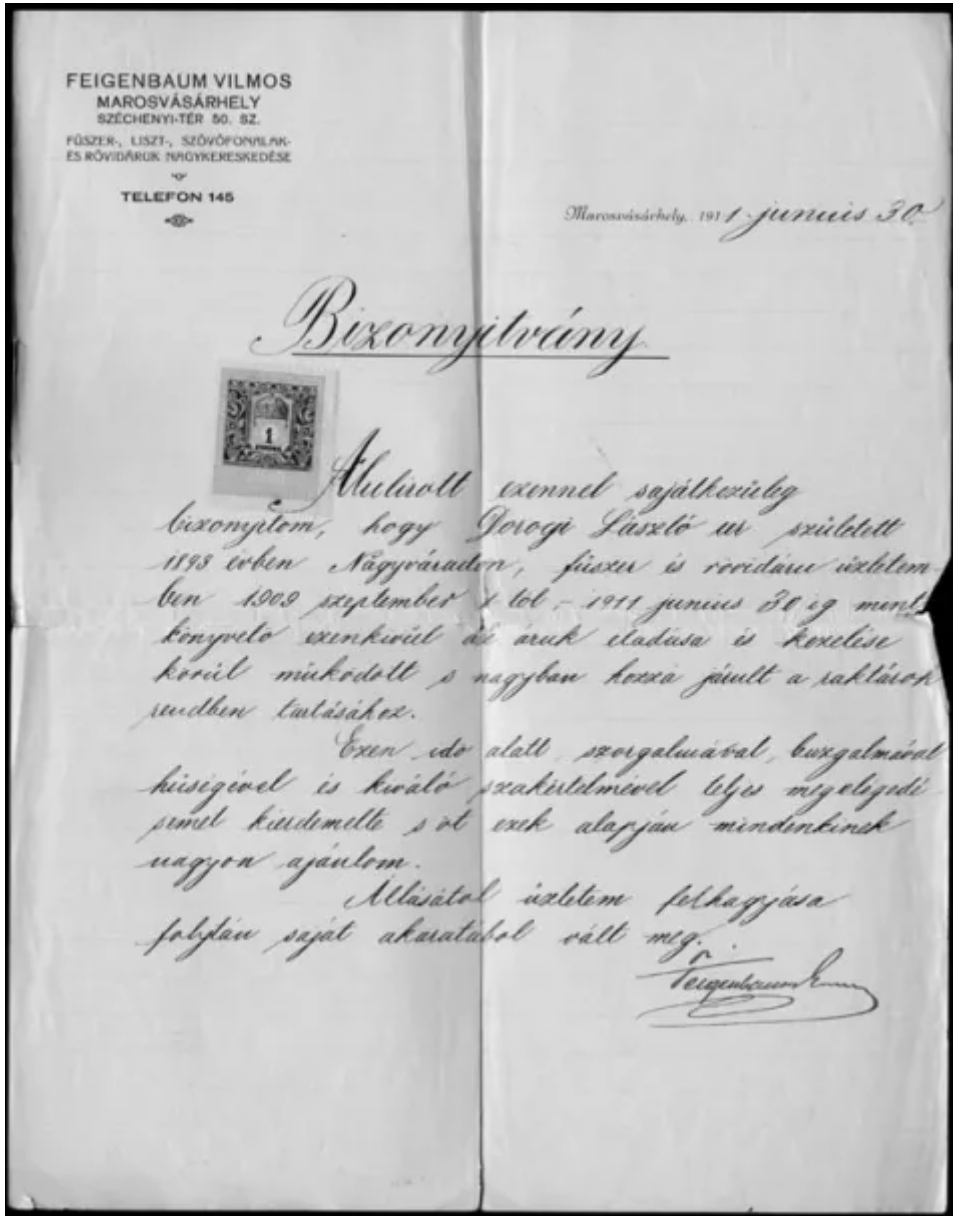 FEIGENBAUM VILMOS
MAROSVÁSÁRHELY
SZÉCHENYI-TÉR 50. SZ.
FŰSZER-, LISZT-, SZÖVŐFONALAK-
ÉS RÖVIDÁRÚK NAGYKERESKEDÉSE
TELEFON 145
Marosvásárhely, 1911 junius 30.
Bizonyitvány
1
Alulirott ezennel sajátkezüleg
bizonyitom, hogy Dorogi László ur született
1893 évben Nagyváradon, füszer és rövidáru üzletem-
ben 1909 szeptember 1 től - 1911 junius 30 ig mint
könyvelő ezenkivül az áruk eladása és kezelése
körül müködött s nagyban hozzá járult a raktárok
rendben tartásához.
Ezen idő alatt szorgalmával, buzgalmával
hüségével és kiváló szakértelmével teljes megelégedé-
semet kiérdemelte s őt ezek alapján mindenkinek
nagyon ajánlom.
Állásától üzletem felhagyása
folytán saját akaratából vált meg.
Feigenbaum